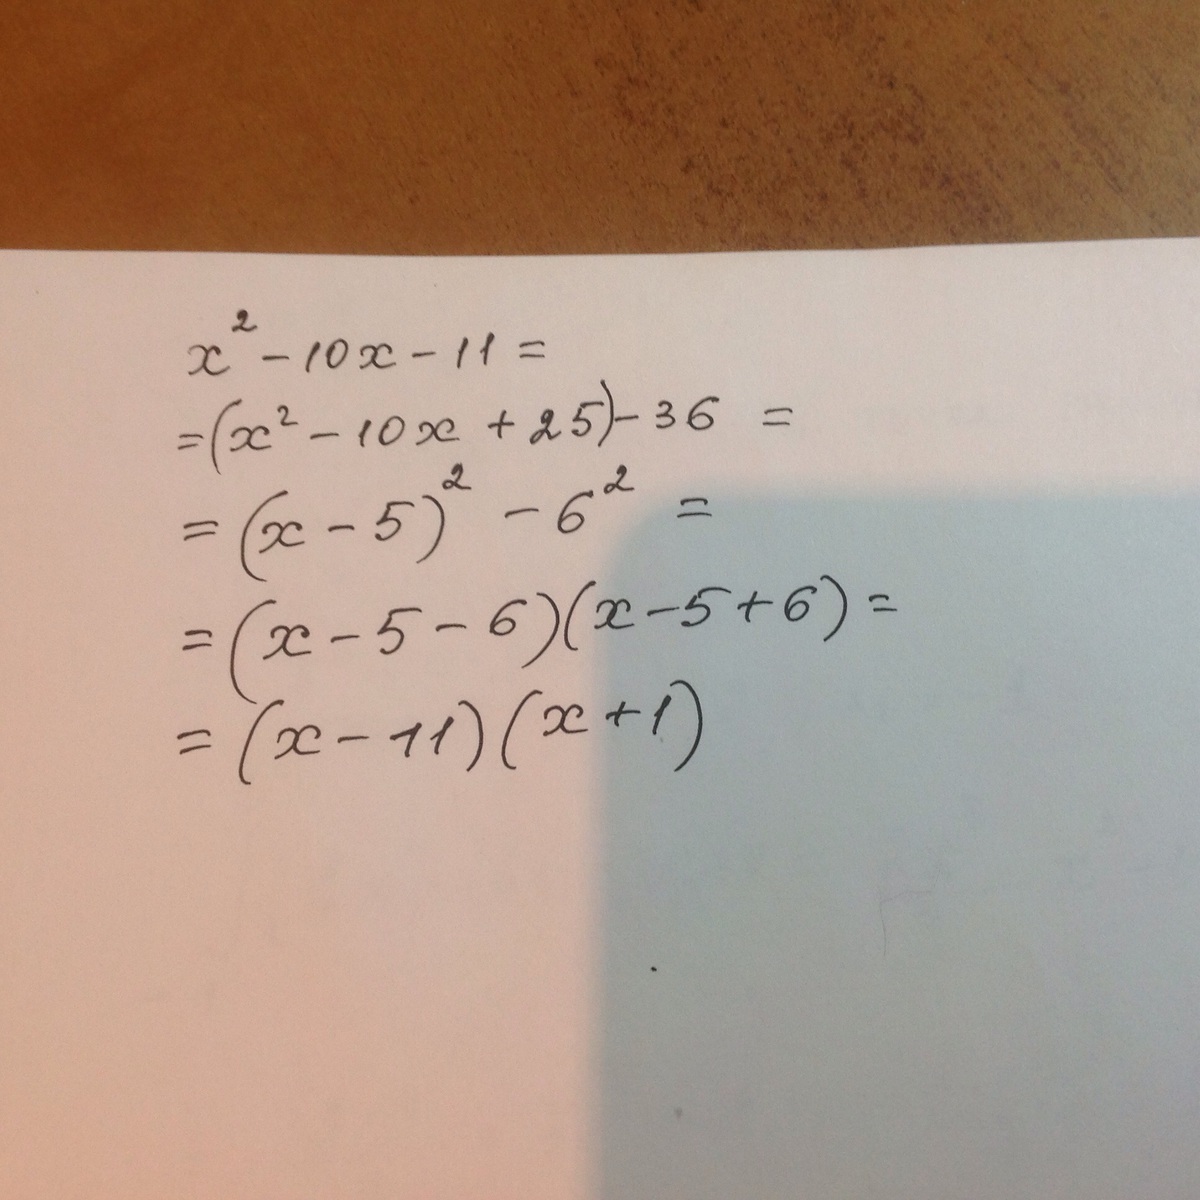 x² - 10x - 11 =
= (x² - 10x + 25) - 36 =
= (x - 5)² - 6² =
= (x - 5 - 6)(x - 5 + 6) =
= (x - 11)(x + 1)